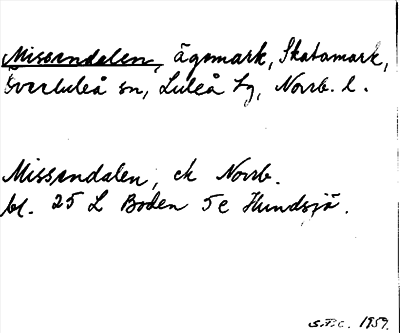 Missendalen, ägomark, Skatamark,
Överluleå sn, Luleå tg, Norrb. l.
Missendalen, ek Norrb.
bl. 25 L Boden 5c Hundsjö.
S.B.C. 1959.